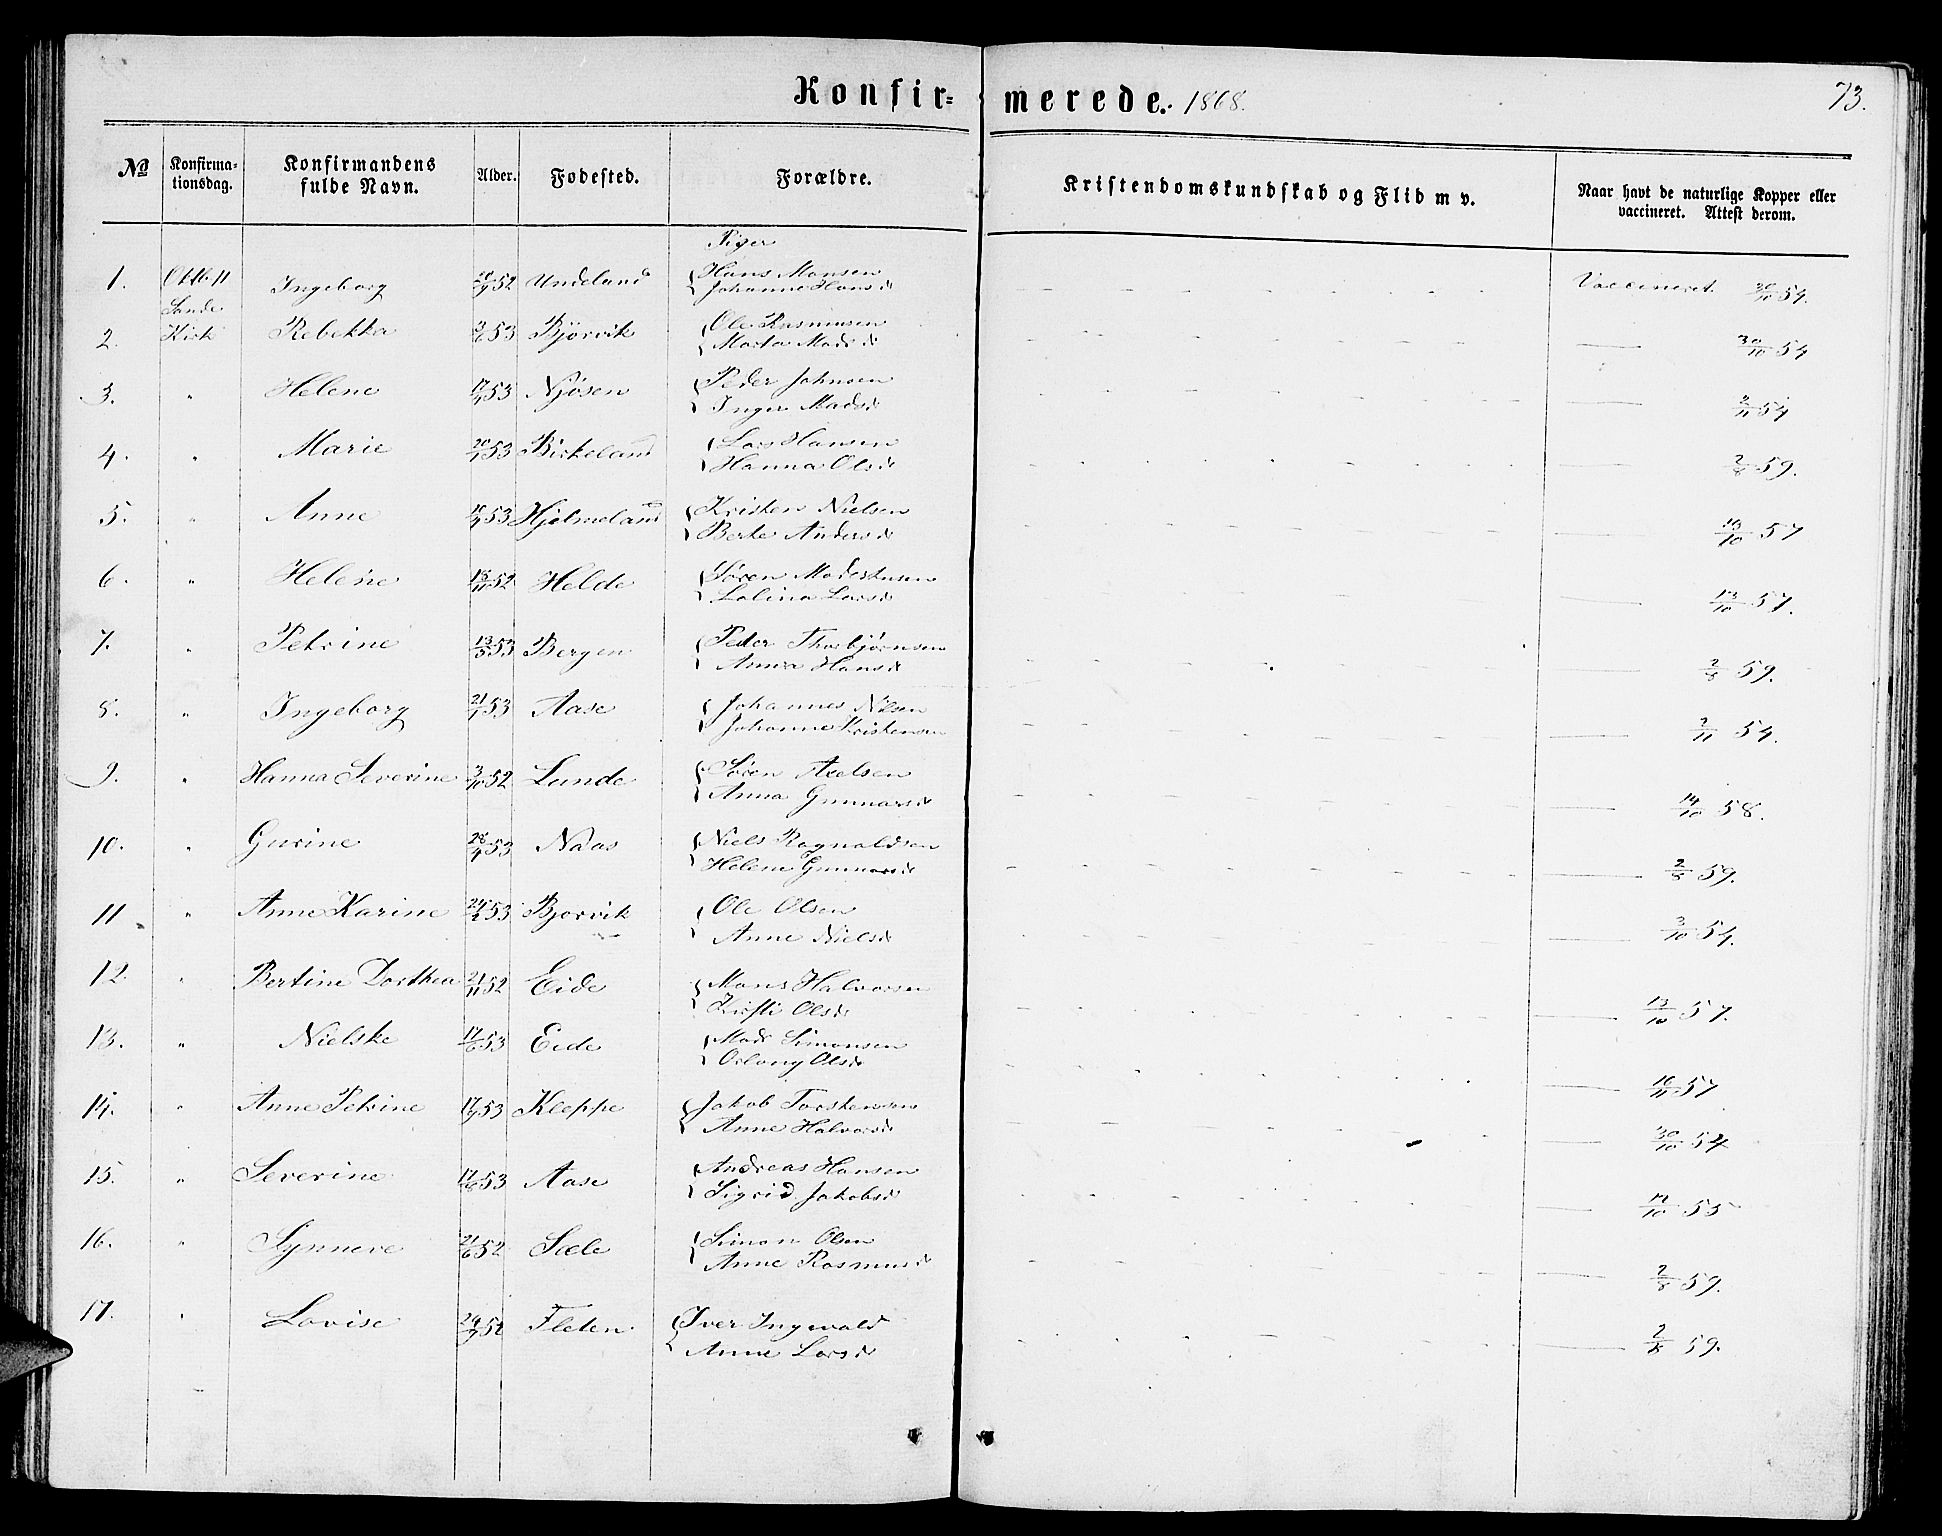 Konfir= merede. 1868. 73.
No Konfirma-tionsdag. Konfirmandens fulde Navn. Alder. Fødested. Forældre. Kristendomskundskab og Flid m v. Naar havt de naturlige Kopper eller vaccineret. Attest derom.
Piger
1. Oktb 11 Sande Kirk Ingeborg 52 Undeland Hans Monsen Johanne Hansd Vaccineret. 30/10 54.
2. Rebekka 3/6 53 Bjørvik Ole Rasmusen Marta Madsd 30/10 54
3. " Helene 53 Njøsen Peder Johnsen Inger Madsd 2/11 54
4. " Marie 20/1 53 Birkeland Lars Hansen Hanna Olsd 2/8 59.
5. " Anne 53 Hjelmeland Kristen Nielsen Berte Andersd 13/10 57
6. " Helene 15/11 52 Helde Søren Modestusen Lalina Larsd 13/10 57.
7. " Petrine 13/5 53 Bergen Peder Thorbjørnsen Anna Hansd 2/8 59.
8. " Ingeborg 21/1 53 Aase Johannes Nilsen Johanne Kristensen 2/11 54.
9. " Hanna Severine 3/10 52 Lunde Søren Axelsen Anna Gunnarsd 14/10 58.
10. " Gurine 28/4 53 Naas Niels Ragnaldsen Helene Gunnarsd 2/8 59.
11 " Anne Karine 24/2 53 Bjorvik Ole Olsen Anne Nielsd 3/10 54.
12. " Bertine Dorthea 21/11 52 Eide Mons Halvorsen Kirsti Olsd 13/10 57.
13. " Nielske 17/6 53 Eide Mads Simonsen Oslaug Olsd 16/11 57
14. " Anne Petrine 17/9 53 Kleppe Jakob Torstensen Anne Halvorsd 30/10 54
15. " Severine 17/8 53 Aase Andreas Hansen Sigrid Jakobsd 12/10 55
16. " Synneve 21/6 52 Sæle Simon Olsen Anne Rasmusd 2/8 59.
17. " Lovise 24/9 52 Fleten Iver Ingvald Anne Larsd 2/8 59.